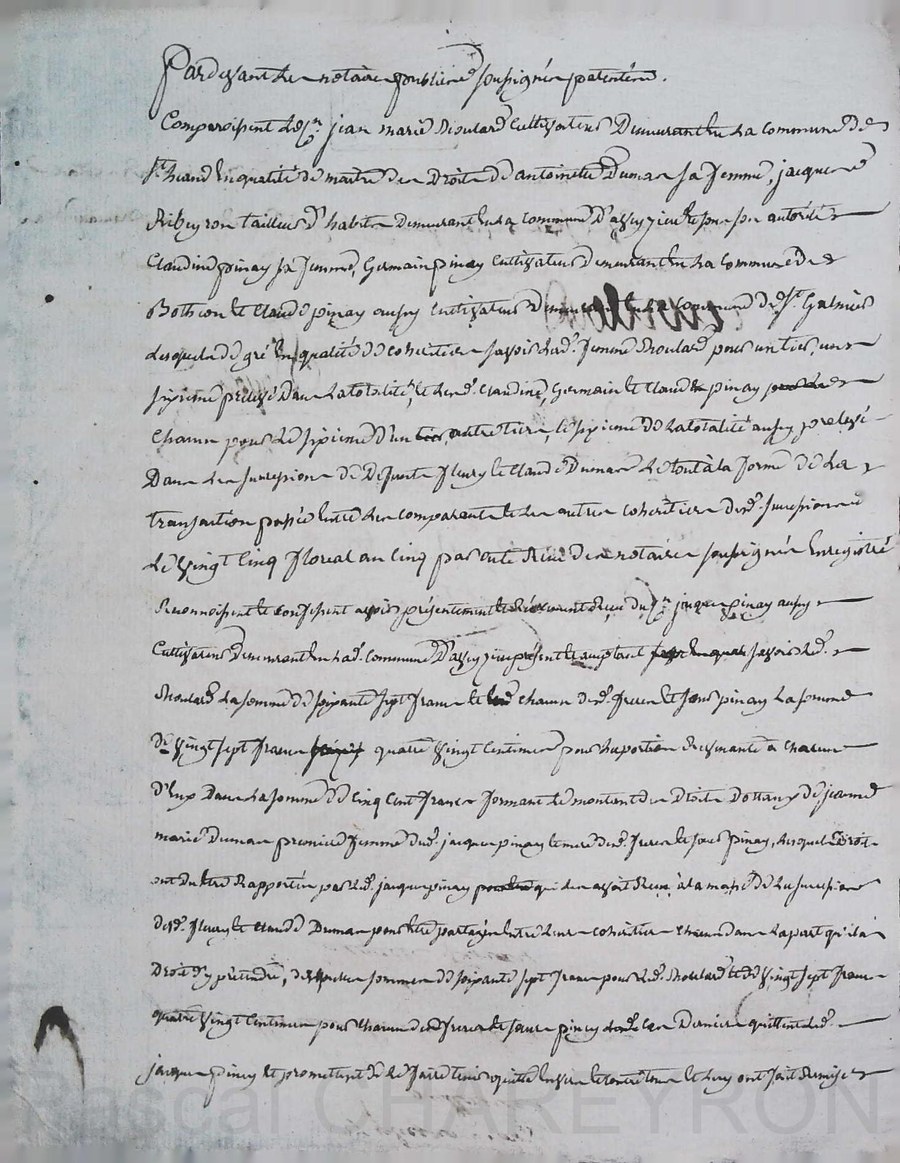 Pardevant le notaire public soussigné patenté.
Comparoissent le cn. jean marie Thoulard cultivateur Demeurant en la commune de
St. heand en qualité de maitre des Droits de antoinette Dumas sa femme, jacques
Ribeyron tailleur d'habits Demeurant en la commune d' et sous son autorité
Claudine pinay sa femme, Germain pinay cultivateur demeurant en la commune de
Bothéon et Claude pinay aussy cultivateur demeurant en la commune de St. Galmier
Lesquels de gré en qualité de cohéritiers savoir lad. femme Thoulard pour un tiers, un
sixieme prelevé Dans la totalité, et lesd. Claudine, Germain et Claude pinay
chacun pour le sixieme d'un autre tiers, le sixieme de la totalité aussy prelevé
Dans les successions de Defunts fleury et Claude Dumas le tout à la forme de la
transaction passée entre les comparants et les autres cohéritiers desd. successions
Le vingt cinq floreal an cinq par acte Reçu des notaires soussignés Enregistré
Reconnoissent et confessent avoir présentement et Reçu du cn. jacques pinay aussy
Cultivateur demeurant en lad. commune D' present et acceptant savoir led.
Thoulard la somme de soixante sept francs et chacun desd. freres et sœur pinay la somme
de vingt sept francs quatre vingt centimes pour la portion revenante à chacun
d'eux Dans la somme de cinq cent francs formant le montant des Droits Dottaux de jeanne
marie Dumas premiere femme dud. jacques pinay et mere desd. freres et sœur pinay, lesquels Droits
ont du etre Rapportés par led. jacques pinay qui les avoit Reçu à la masse de la succession
desd. fleury et Claude Dumas pour être partagés entre leurs cohéritiers chacun dans la part qu'il a
Droit d'y prétendre, desquelles sommes de soixante sept francs pour led. Thoulard et de vingt sept francs
quatre vingt centimes pour chacun desd. freres et sœur pinay ces Derniers quittent led.
jacques pinay et promettent de le faire tenir quitte envers et contre tous et luy ont fait Remise
Pascal CHAREYRON